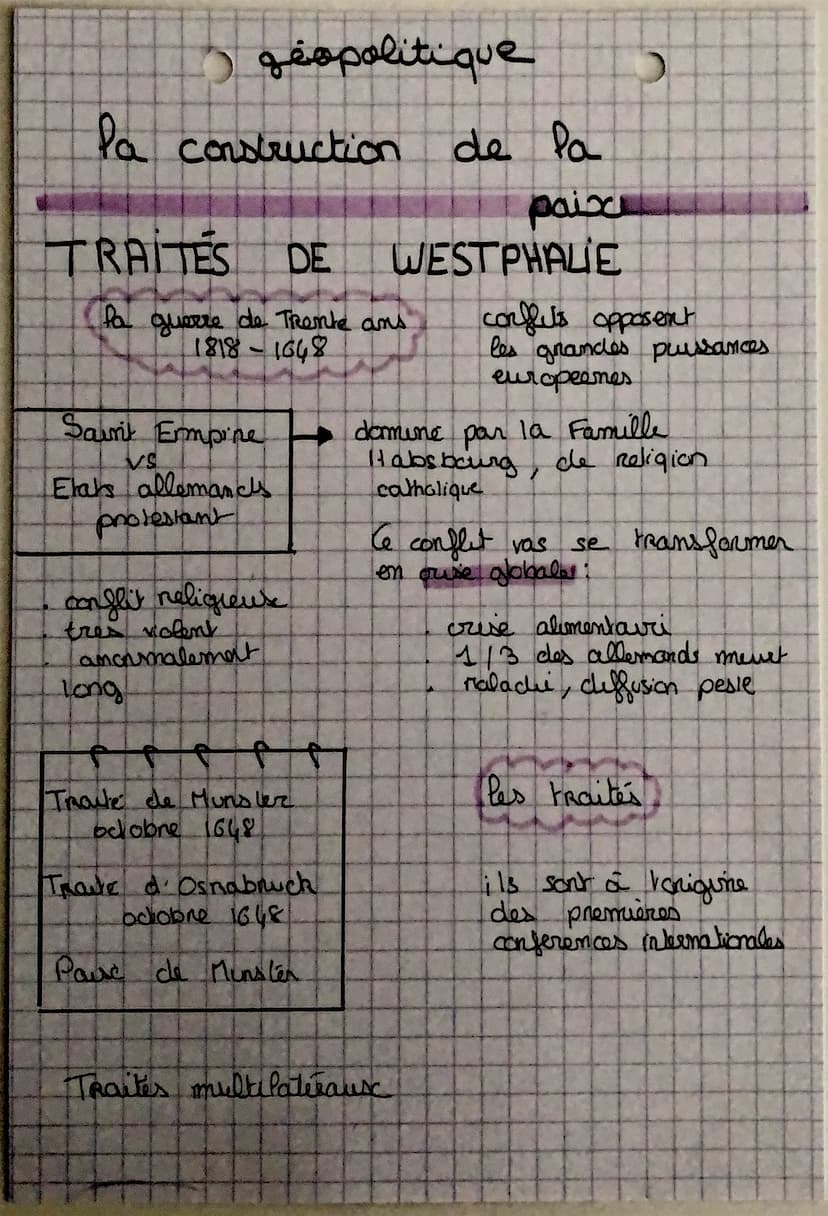 géopolitique
la construction de la
paix
TRAITÉS DE WESTPHALIE
la guerre de Trente ans
1818 - 1648
conflits opposent
les grandes puissances
europeenes
Saint Empire
vs
Etats allemands
protestant
domine par la Famille
Habsbourg, de religion
catholique
Ce conflit vas se transformer
en crise globale :
. conflit religieux
. tres violent
. anormalement
long
. crise alimentairi
. 1/3 des allemands meurt
. maladie, diffusion peste
Traité de Munster
octobre 1648
Traite d'Osnabruck
octobre 1648
Paix de Munster
les traités
ils sont à l'origine
des premières
conferences internationales
Traités multilatéraux